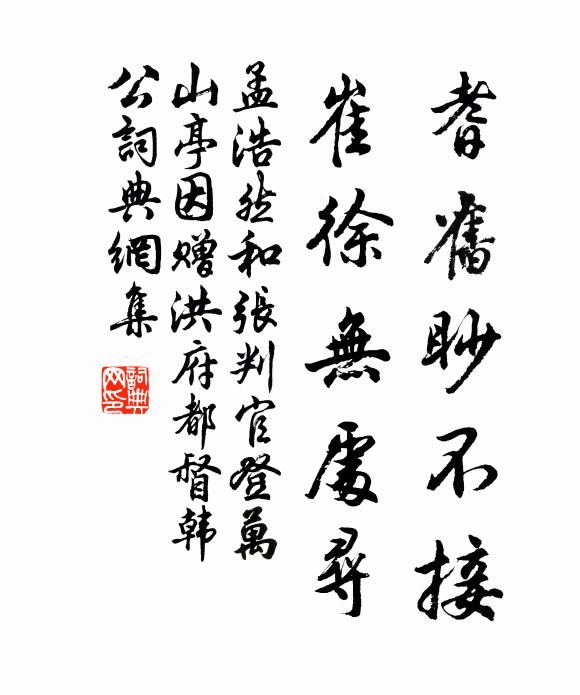 耆舊眇不接
崔徐無處尋
孟浩然和張判官登萬
山亭因贈洪府都督韩
公詞典網集
詞典
网印